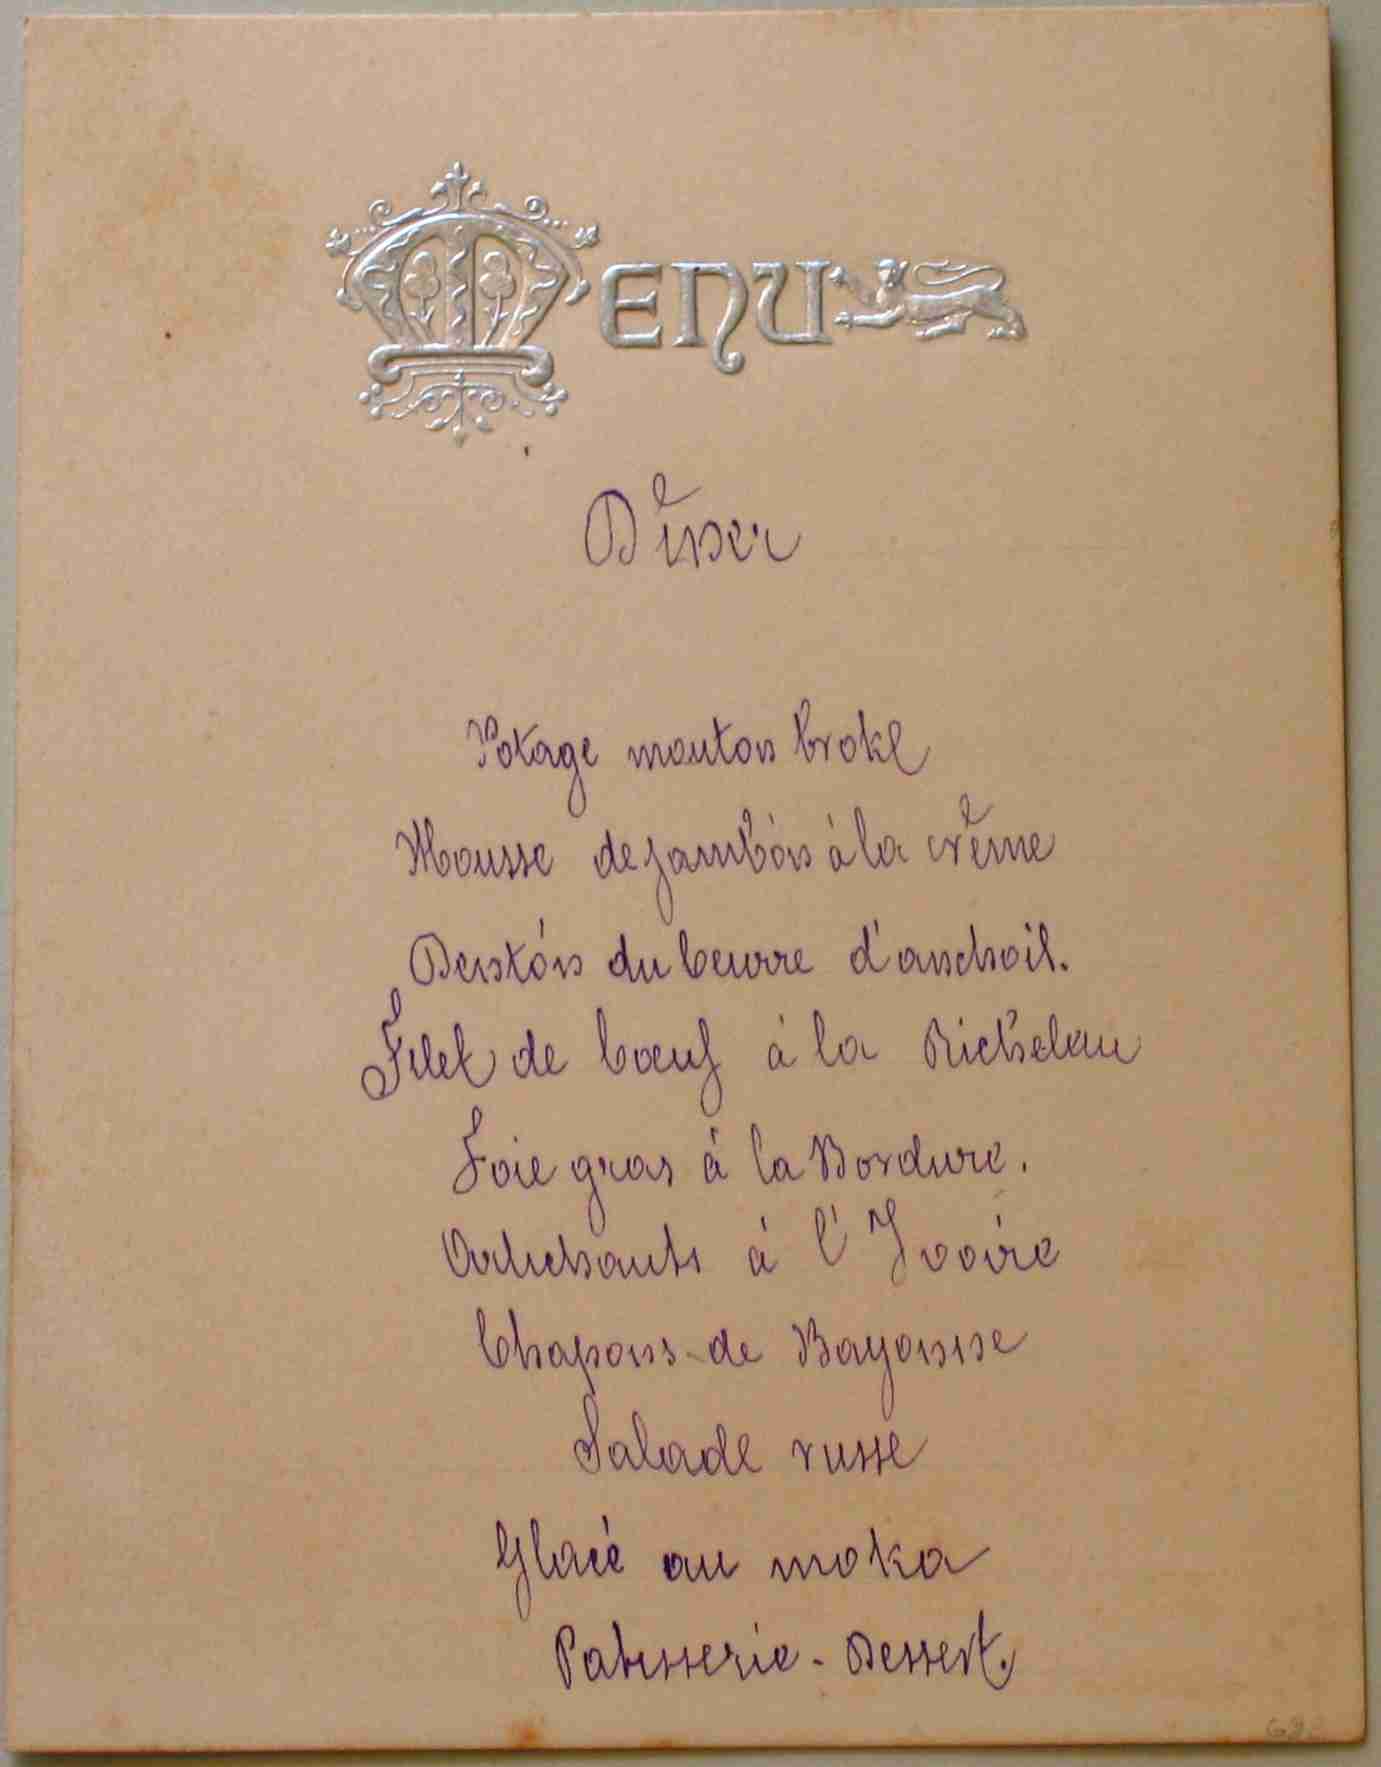 MENU
Dîner
Potage mouton broke
Mousse de jambon à la crème
Dentón du beurre d'anchoil.
Filet de boeuf à la Richelau
Foie gras à la Bordure.
Artichauts à l'Ivoire
Chapons de Bayonne
Salade russe
Glacé au moka
Patisserie - Dessert.